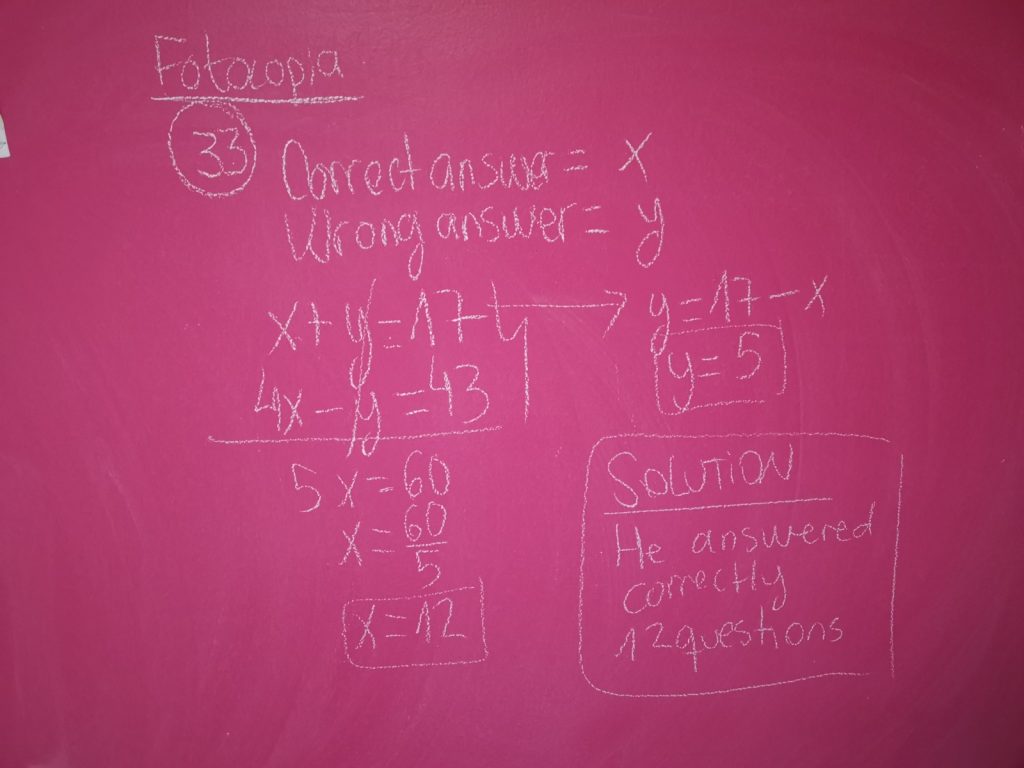 Fotocopia
33
Correct answer = x
Wrong answer = y
x + y = 17
4x - y = 43
5x = 60
x = 60/5
x = 12
y = 17 - x
y = 5
SOLUTION
He answered
correctly
12 questions